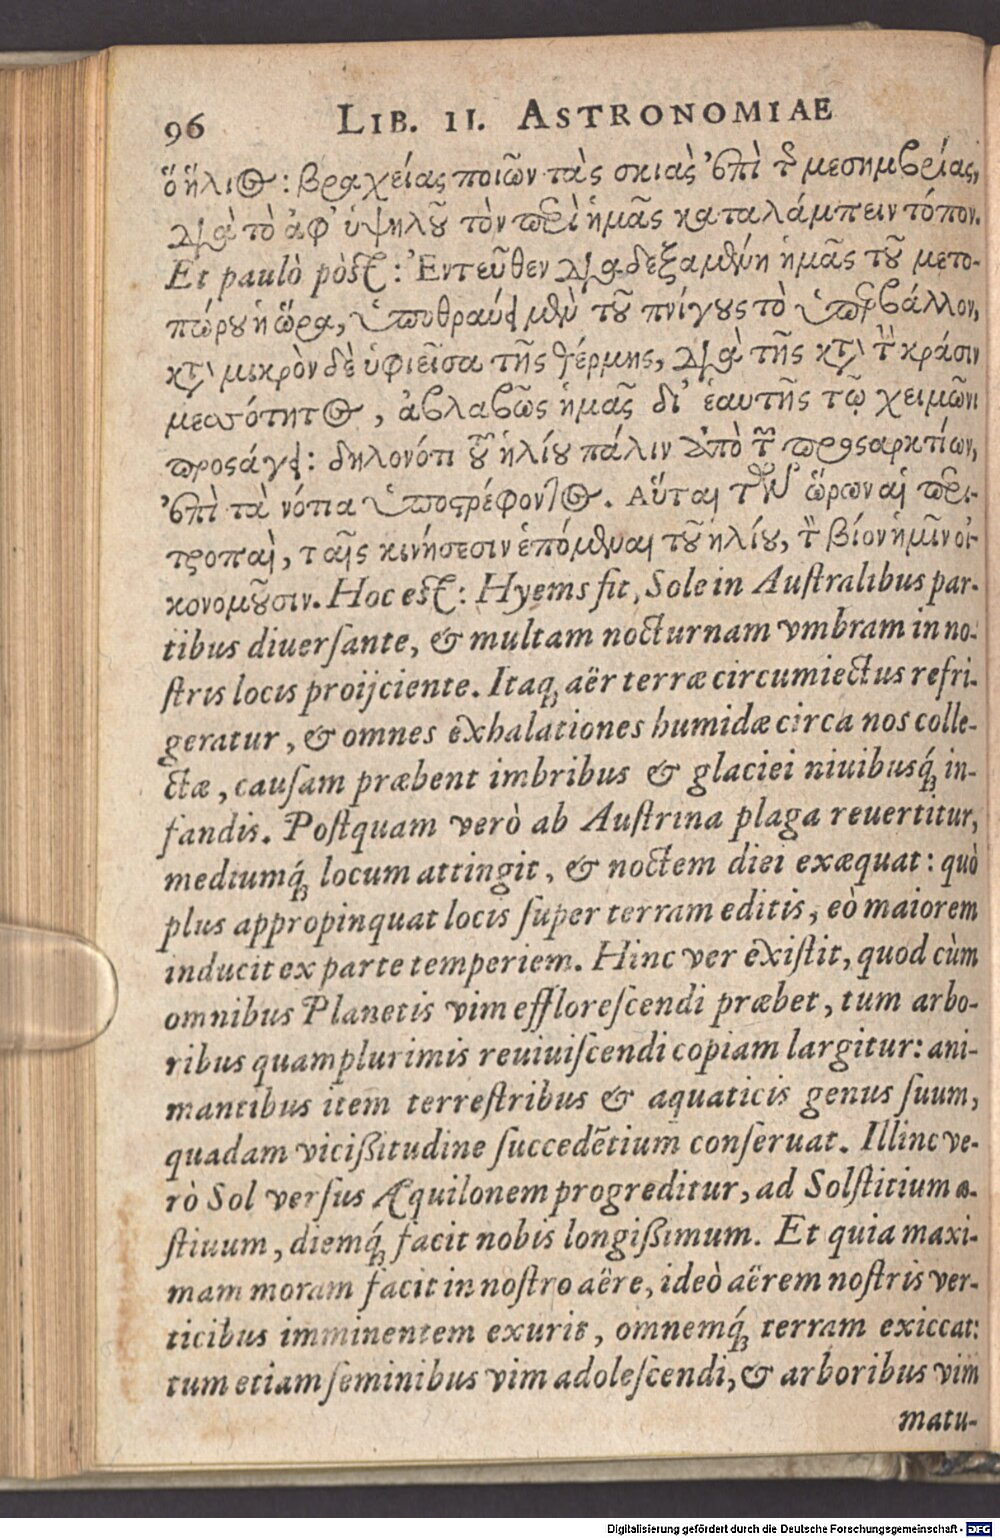 96 LIB. II. ASTRONOMIAE
ὅ ἥλιος: βραχείας ποιῶν τὰς σκιὰς ἐπὶ τ̃ μεσημβρίας,
διὰ τὸ ἀφ' ὑψηλοῦ τὸν περὶ ἡμᾶς καταλάμπειν τόπον.
Et paulò pòst: Ἐντεῦθεν διαδεξαμένη ἡμᾶς τοῦ μετο-
πώρου ἡ ὥρα, ὑποθραύει μὲν τοῦ πνίγους τὸ ὑπερβάλλον,
κατὰ μικρὸν δὲ ὑφιεῖσα τῆς θέρμης, διὰ τῆς κατὰ τ̀ κράσιν
μεσότητος, ἀβλαβῶς ἡμᾶς δι' ἑαυτῆς τῷ χειμῶνι
προσάγει: δηλονότι τοῦ ἡλίου πάλιν ἀπὸ τ̃ προςαρκτίων,
ἐπὶ τὰ νότια ὑποςρέφοντος. Αὗται τῶν ὥρων αἱ περι-
τροπαὶ, ταῖς κινήσεσιν ἑπόμεναι τοῦ ἡλίου, τ̀ βίον ἡμῖν οἰ-
κονομοῦσιν. Hoc est: Hyems fit, Sole in Auſtralibus par-
tibus diuerſante, & multam nocturnam vmbram in no-
ſtris locis proijciente. Itaq; aër terræ circumiectus refri-
geratur, & omnes exhalationes humidæ circa nos colle-
ctæ, cauſam præbent imbribus & glaciei niuibusq́; in-
fandis. Poſtquam verò ab Auſtrina plaga reuertitur,
mediumq́; locum attingit, & noctem diei exæquat: quò
plus appropinquat locis ſuper terram editis, eò maiorem
inducit ex parte temperiem. Hinc ver exiſtit, quod cùm
omnibus Planetis vim effloreſcendi præbet, tum arbo-
ribus quamplurimis reuiuiſcendi copiam largitur: ani-
mantibus item terreſtribus & aquaticis genus ſuum,
quadam viciſsitudine ſuccedẽtium conſeruat. Illinc ve-
rò Sol verſus Æquilonem progreditur, ad Solſtitium æ-
ſtiuum, diemq́; facit nobis longiſsimum. Et quia maxi-
mam moram facit in noſtro aëre, ideò aërem noſtris ver-
ticibus imminentem exurit, omnemq́; terram exiccat:
tum etiam ſeminibus vim adoleſcendi, & arboribus vim
matu-
Digitalisierung gefördert durch die Deutsche Forschungsgemeinschaft - DFG